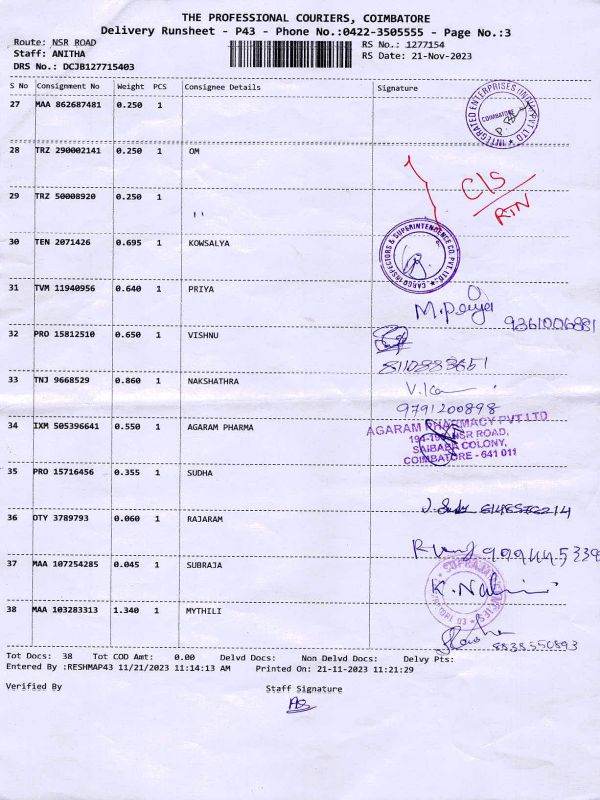 THE PROFESSIONAL COURIERS, COIMBATORE
Delivery Runsheet - P43 - Phone No.:0422-3505555 - Page No.:3
Route: NSR ROAD
RS No.: 1277154
Staff: ANITHA
RS Date: 21-Nov-2023
DRS No.: DCJB127715403
S No Consignment No Weight PCS Consignee Details Signature
27 MAA 862687481 0.250 1
INTEGRATED ENTERPRISES COIMBATORE
28 TRZ 290002141 0.250 1 OM
C/S
RTN
29 TRZ 50008920 0.250 1 ''
CARGO INSPECTORS & SUPERINTENDENCE CO. PVT. LTD.
30 TEN 2071426 0.695 1 KOWSALYA
31 TVM 11940956 0.640 1 PRIYA
M.Priya 9361006881
32 PRO 15812510 0.650 1 VISHNU
8110883651
33 TNJ 9668529 0.860 1 NAKSHATHRA
9791200898
34 IXM 505396641 0.550 1 AGARAM PHARMA
AGARAM PHARMACY PVT LTD
NSR ROAD,
SAIBABA COLONY,
COIMBATORE - 641 011
35 PRO 15716456 0.355 1 SUDHA
36 OTY 3789793 0.060 1 RAJARAM
37 MAA 107254285 0.045 1 SUBRAJA
K. Nalini
38 MAA 103283313 1.340 1 MYTHILI
8838550893
Tot Docs: 38 Tot COD Amt: 0.00 Delvd Docs: Non Delvd Docs: Delvy Pts:
Entered By :RESHMAP43 11/21/2023 11:14:13 AM Printed On: 21-11-2023 11:21:29
Verified By Staff Signature